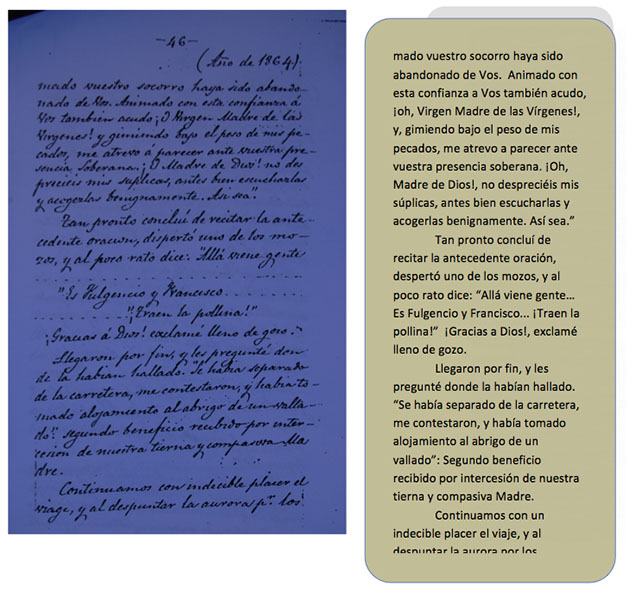 -46-
(Año de 1864)
mado vuestro socorro haya sido abando-
nado de Vos. Animado con esta confianza á
Vos tambien acudo ¡O Vírgen Madre de las
Vírgenes! y gimiendo bajo el peso de mis pe-
cados, me atrevo á parecer ante vuestra pre-
sencia Soberana. ¡O Madre de Dios! no des
precieis mis súplicas, antes bien escucharlas
y acogerlas benignamente. Así sea".
Tan pronto concluí de recitar la ante-
cedente oracion, dispertó uno de los mo-
zos, y al poco rato dice: "Allá viene gente
"Es Fulgencio y Francisco
"¡Traen la pollina!"
¡Gracias á Dios! exclamé lleno de gozo.
Llegaron por fin, y les pregunté don
de la habian hallado. "Se habia separado
de la carretera, me contestaron, y habia to-
mado alojamiento al abrigo de un valla-
do": segundo beneficio recibido por inter-
cecion de nuestra tierna y compasiva Ma
dre.
Continuamos con indecible placer el
viage, y al despuntar la aurora pr. los
mado vuestro socorro haya sido
abandonado de Vos. Animado con
esta confianza a Vos también acudo,
¡oh, Virgen Madre de las Vírgenes!,
y, gimiendo bajo el peso de mis
pecados, me atrevo a parecer ante
vuestra presencia soberana. ¡Oh,
Madre de Dios!, no despreciéis mis
súplicas, antes bien escucharlas y
acogerlas benignamente. Así sea.”
Tan pronto concluí de
recitar la antecedente oración,
despertó uno de los mozos, y al
poco rato dice: “Allá viene gente…
Es Fulgencio y Francisco... ¡Traen la
pollina!” ¡Gracias a Dios!, exclamé
lleno de gozo.
Llegaron por fin, y les
pregunté donde la habían hallado.
“Se había separado de la carretera,
me contestaron, y había tomado
alojamiento al abrigo de un
vallado”: Segundo beneficio
recibido por intercesión de nuestra
tierna y compasiva Madre.
Continuamos con un
indecible placer el viaje, y al
despuntar la aurora por los